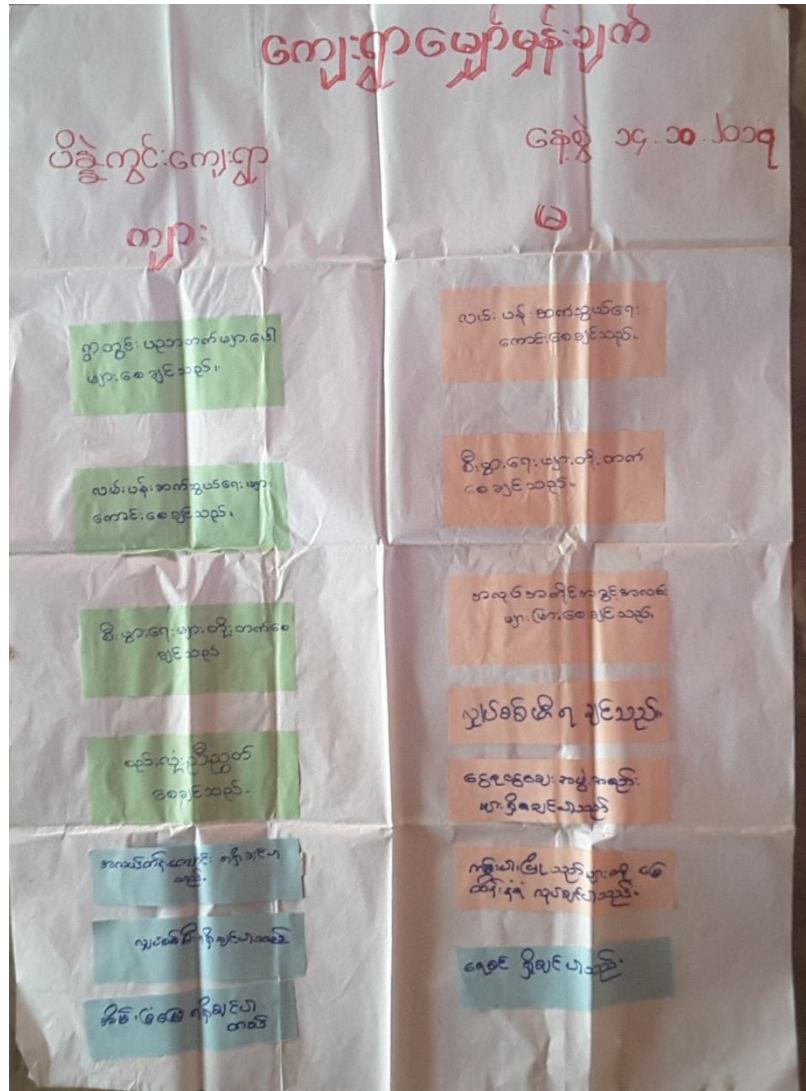 ကျေးရွာမျှော်မှန်းချက်
ပိန္နဲကွင်းကျေးရွာ
နေ့စွဲ ၁၄.၁၀.၂၀၁၇
ကျား
မ
ရွာတွင်း ပညာတတ်များပေါ
များစေချင်သည်။
လမ်းပန်းဆက်သွယ်ရေးများ
ကောင်းစေချင်သည်။
စီးပွားရေးများတိုးတက်စေ
ချင်သည်
စည်းလုံးညီညွတ်
စေချင်သည်။
အလယ်တန်းကျောင်း ရရှိချင်ပါ
သည်။
လျှပ်စစ်မီးရရှိချင်ပါသည်
အိမ်၊ခြံမြေ ရရှိချင်ပါ
တယ်
လမ်းပန်းဆက်သွယ်ရေး
ကောင်းစေချင်သည်။
စီးပွားရေးများတိုးတက်
စေချင်သည်။
အလုပ်အကိုင်အခွင့်အလမ်း
များပြားစေချင်သည်။
လျှပ်စစ်မီးရချင်သည်။
ငွေစုငွေချေးအဖွဲ့အစည်း
များရှိစေချင်ပါသည်
လုပ်ချင်ပါသည်။
ရေသန့် ရရှိချင်ပါသည်။